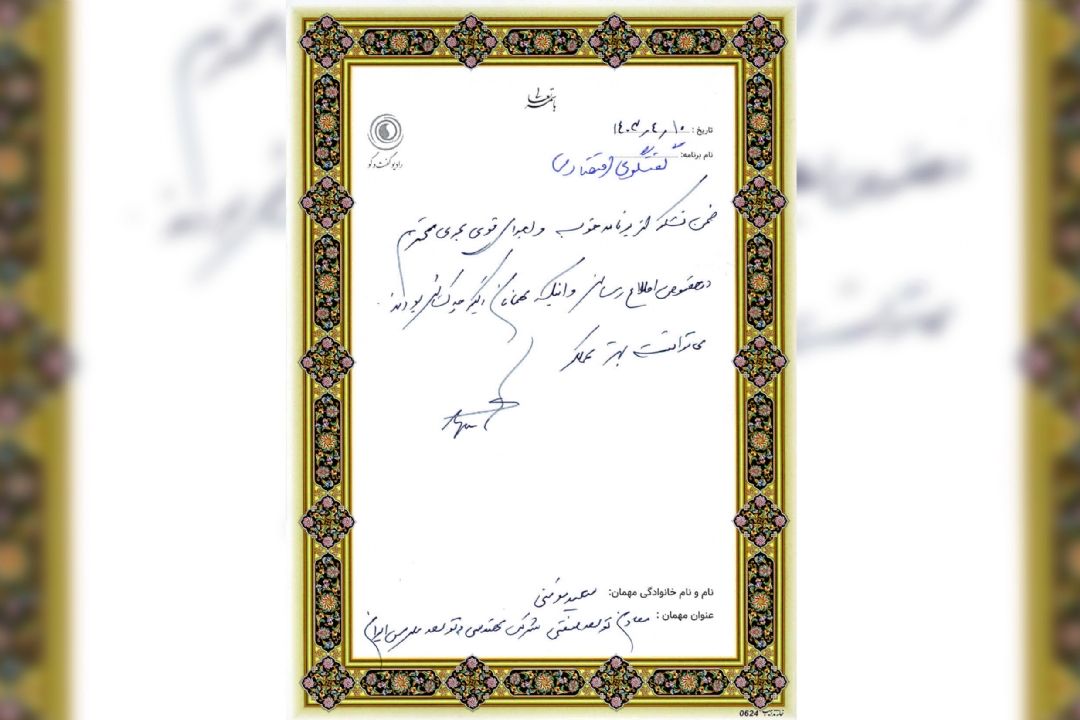 باسمه تعالی
رادیو گفت و گو
تاریخ : ۱۴۰۳/۴/۱۰
نام برنامه: گفتگوی اقتصادی
ضمن تشکر از برنامه خوب و اجرای قوی مجری محترم
در خصوص اطلاع رسانی و اینکه مهمانان دیگر
می توانست بهتر عمل کرد
نام و نام خانوادگی مهمان: سعید مؤمنی
عنوان مهمان : معاون توسعه صنعتی شرکت مهندسی و توسعه ایران
0624